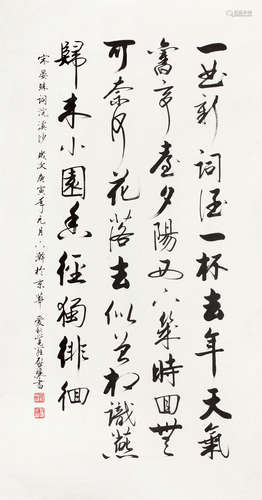 一曲新詞酒一杯去年天氣
舊亭臺夕陽西下幾時回無
可奈何花落去似曾相識燕
歸來小園香徑獨徘徊
宋晏殊詞浣溪沙 歲次庚寅年元月於京華 愛新覺羅書